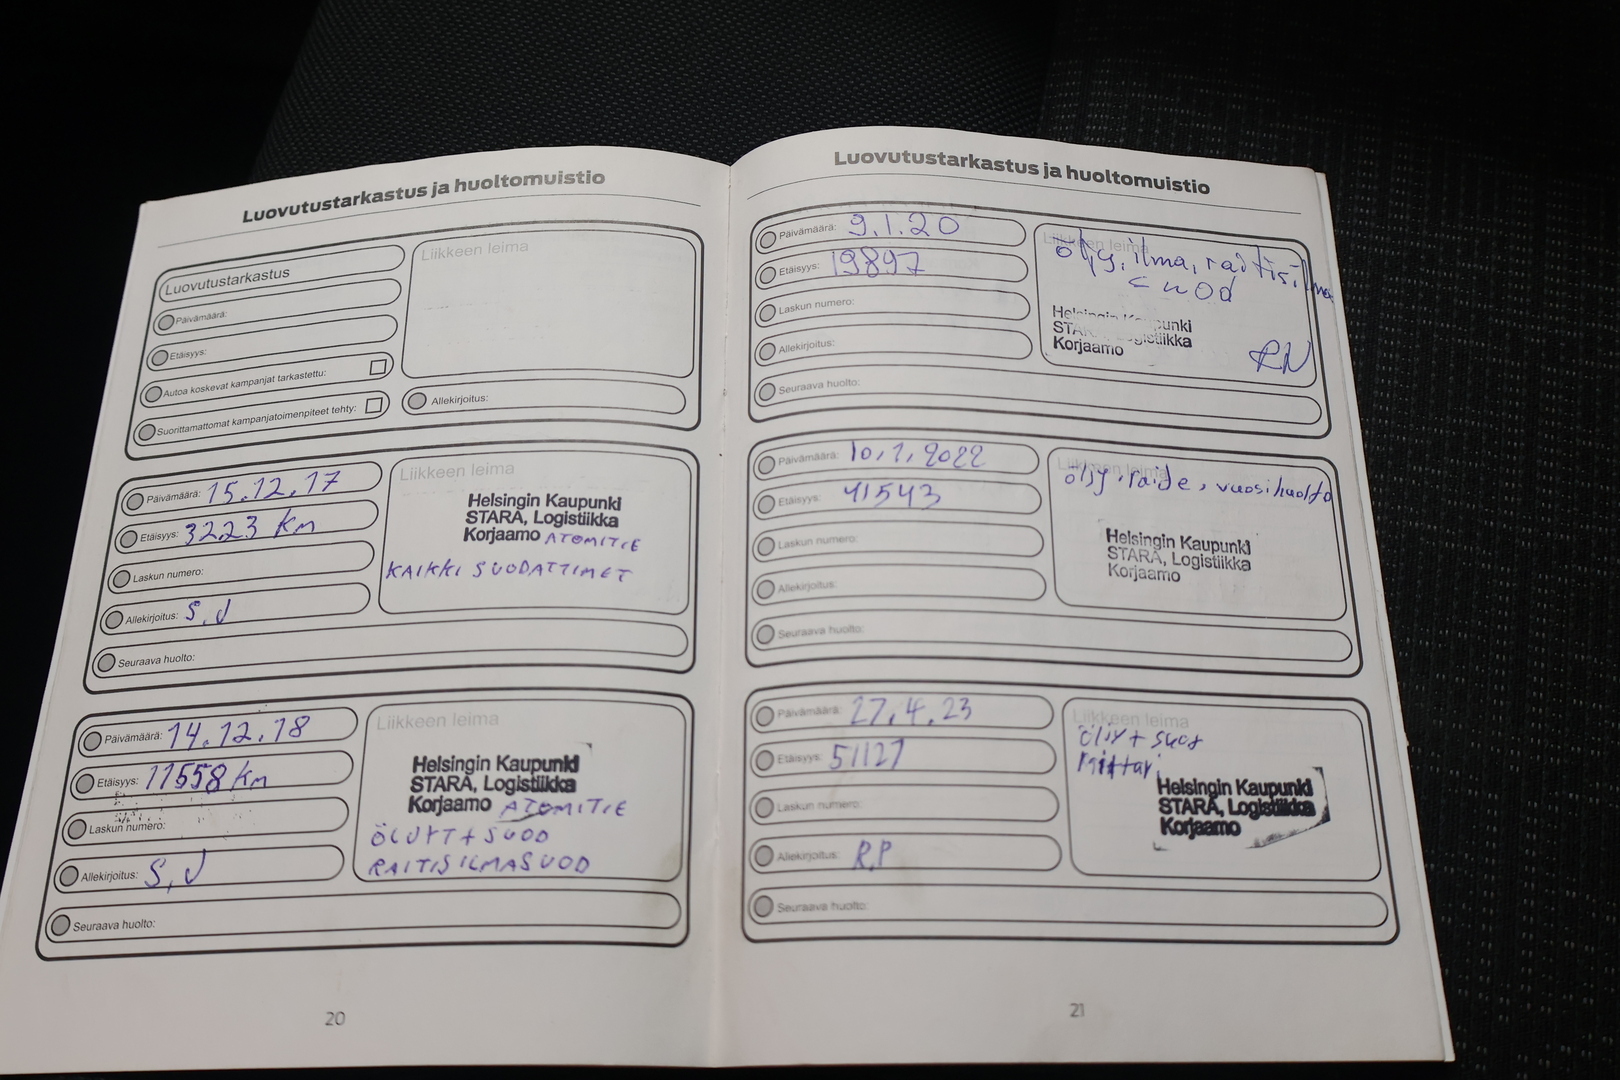 Luovutustarkastus ja huoltomuistio
Luovutustarkastus
Päivämäärä:
Etäisyys:
Autoa koskevat kampanjat tarkastettu:
Suorittamattomat kampanjatoimenpiteet tehty:
Liikkeen leima
Allekirjoitus:
Päivämäärä: 15.12.17
Etäisyys: 3223 km
Laskun numero:
Allekirjoitus: S.J
Seuraava huolto:
Liikkeen leima
Helsingin Kaupunki
STARA, Logistiikka
Korjaamo ATOMITIE
KAIKKI SUODATTIMET
Päivämäärä: 14.12.18
Etäisyys: 11558 km
Laskun numero:
Allekirjoitus: S,J
Seuraava huolto:
Liikkeen leima
Helsingin Kaupunki
STARA, Logistiikka
Korjaamo ATOMITIE
ÖLJYT + SUOD
RAITISILMASUOD
20
Luovutustarkastus ja huoltomuistio
Päivämäärä: 9.1.20
Etäisyys: 19897
Laskun numero:
Allekirjoitus:
Seuraava huolto:
Liikkeen leima
öljy, ilma, raitisilma
suod
Helsingin Kaupunki
STARA, Logistiikka
Korjaamo
RN
Päivämäärä: 10.1.2022
Etäisyys: 41543
Laskun numero:
Allekirjoitus:
Seuraava huolto:
Liikkeen leima
öljy, raide, vuosihuolto
Helsingin Kaupunki
STARA, Logistiikka
Korjaamo
Päivämäärä: 27.4.23
Etäisyys: 51127
Laskun numero:
Allekirjoitus: R.P
Seuraava huolto:
Liikkeen leima
öljy + suod
Mittari
Helsingin Kaupunki
STARA, Logistiikka
Korjaamo
21